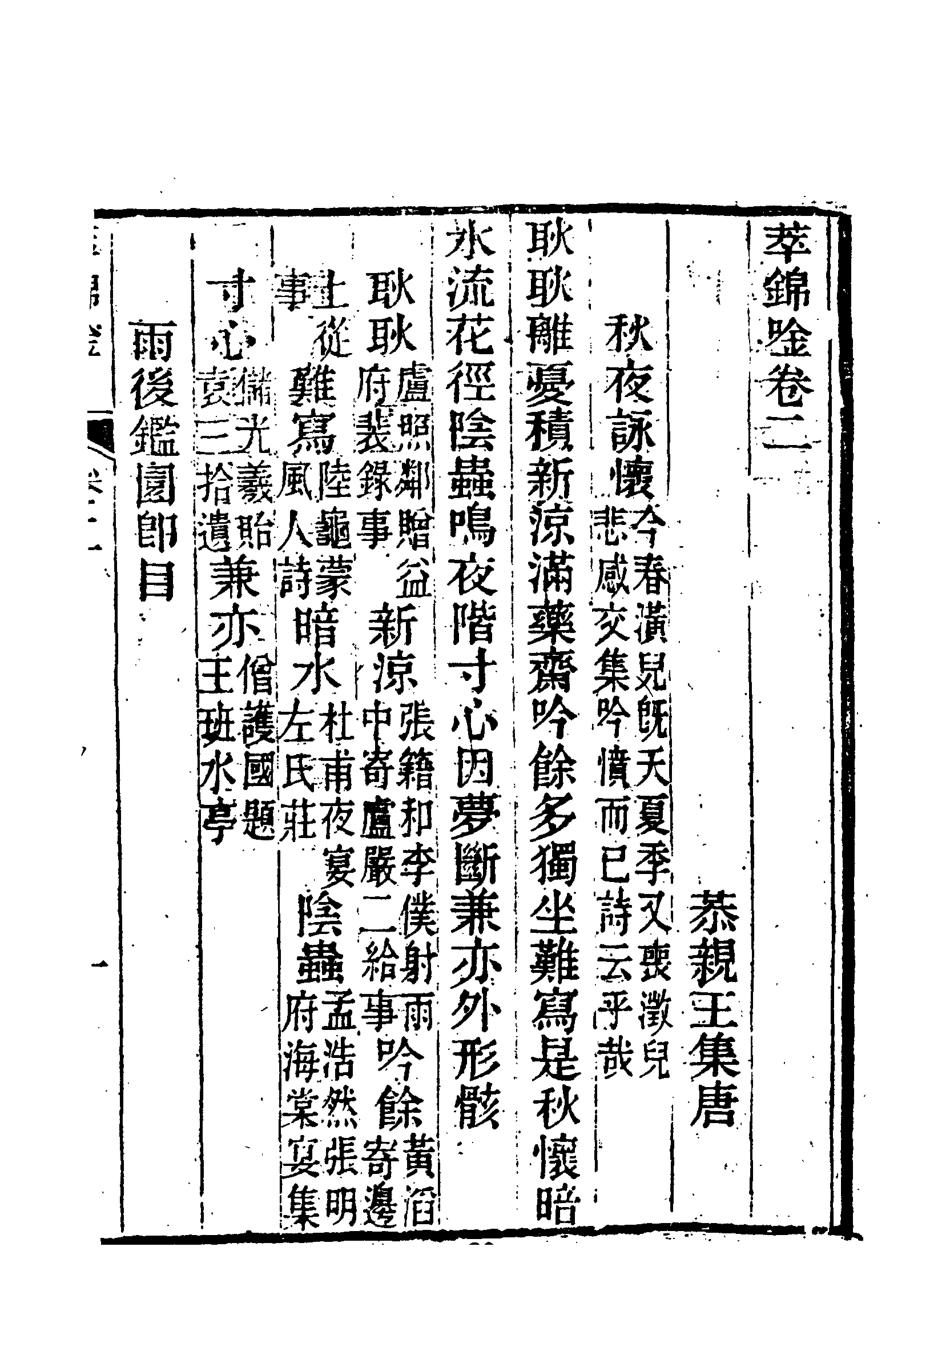 萃錦唫卷二
恭親王集唐
秋夜詠懷今春潢兒旣夭夏季又喪澂兒悲感交集吟憤而已詩云乎哉
耿耿離憂積新涼滿藥齋吟餘多獨坐難寫是秋懷暗
水流花徑陰蟲鳴夜階寸心因夢斷兼亦外形骸
耿耿盧照鄰贈益府裴錄事 新涼張籍和李僕射雨中寄盧嚴二給事 吟餘黃滔寄邊
上從事 難寫陸龜蒙風人詩 暗水杜甫夜宴左氏莊 陰蟲孟浩然張明府海棠宴集
寸心儲光羲貽袁三拾遺 兼亦僧護國題王班水亭
雨後鑑園卽目
萃錦唫 卷二 一